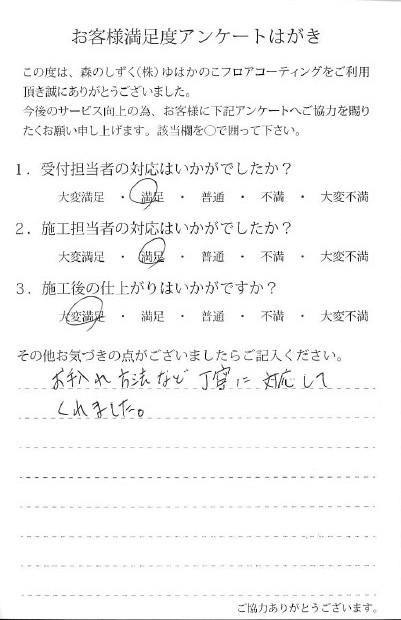 お客様満足度アンケートはがき
この度は、森のしずく(株)ゆはかのこフロアコーティングをご利用
頂き誠にありがとうございました。
今後のサービス向上の為、お客様に下記アンケートへご協力を賜り
たくお願い申し上げます。該当欄を○で囲って下さい。
1. 受付担当者の対応はいかがでしたか?
大変満足 ・ 満足 ・ 普通 ・ 不満 ・ 大変不満
2. 施工担当者の対応はいかがでしたか?
大変満足 ・ 満足 ・ 普通 ・ 不満 ・ 大変不満
3. 施工後の仕上がりはいかがですか?
大変満足 ・ 満足 ・ 普通 ・ 不満 ・ 大変不満
その他お気づきの点がございましたらご記入ください。
お手入れ方法など丁寧に対応して
くれました。
ご協力ありがとうございます。